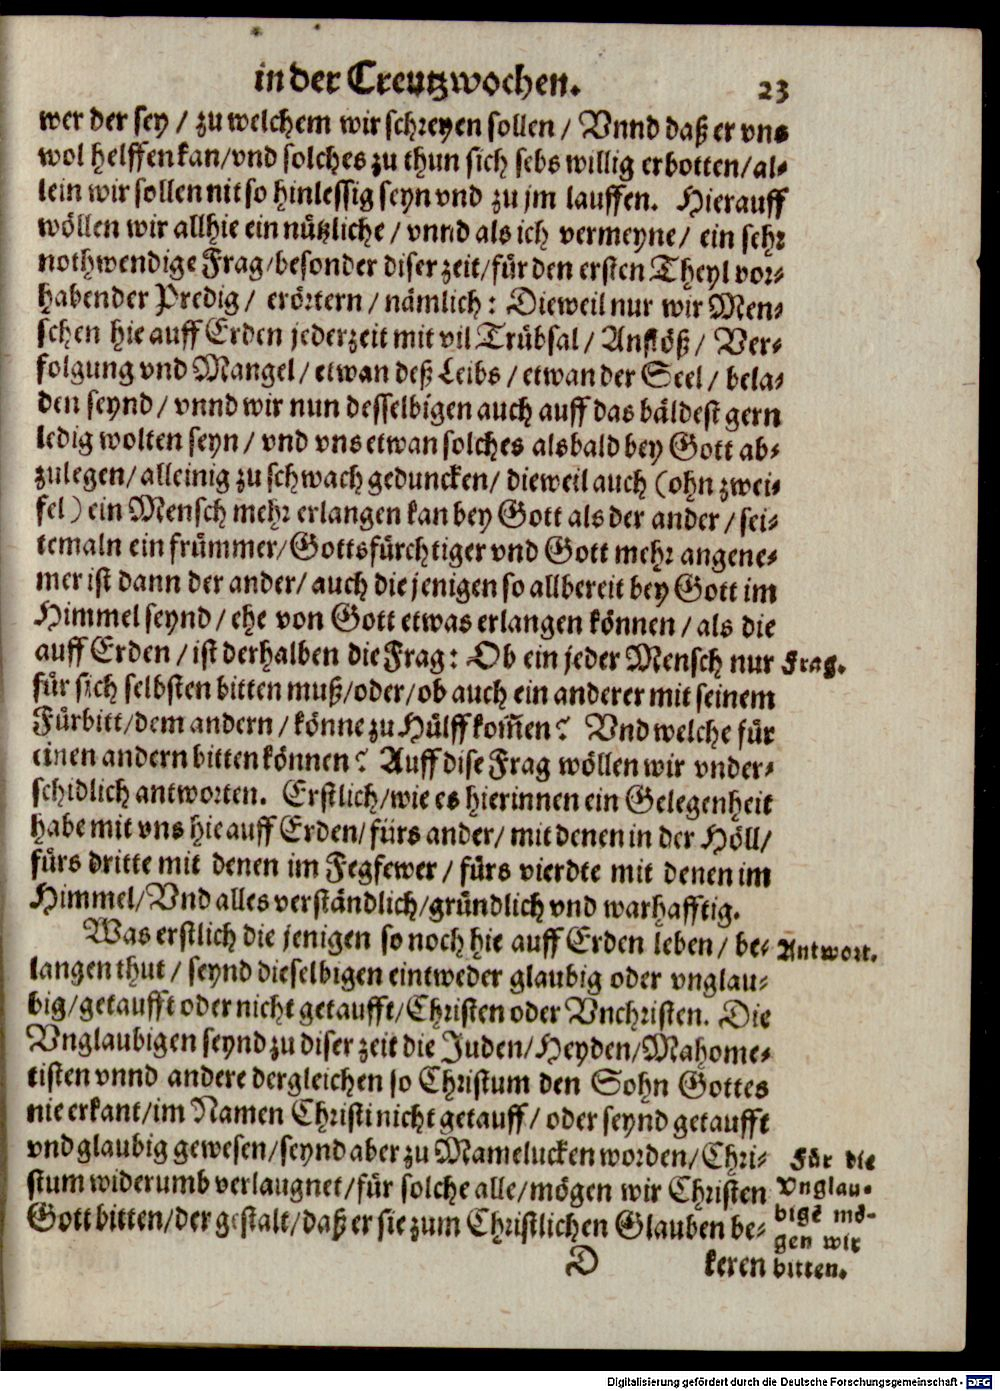 in der Creutzwochen. 23
wer der sey / zu welchem wir schreyen sollen / Vnnd daß er vns
wol helffen kan/vnd solches zu thun sich sebs willig erbotten/al-
lein wir sollen nit so hinlessig seyn vnd zu jm lauffen. Hierauff
wöllen wir allhie ein nützliche / vnnd als ich vermeyne / ein sehr
nothwendige Frag/besonder diser zeit/für den ersten Theyl vor-
habender Predig / erörtern / nämlich: Dieweil nur wir Men-
schen hie auff Erden jederzeit mit vil Trübsal / Anstöß / Ver-
folgung vnd Mangel / etwan deß Leibs / etwan der Seel / bela-
den seynd / vnnd wir nun desselbigen auch auff das bäldest gern
ledig wolten seyn / vnd vns etwan solches alsbald bey Gott ab-
zulegen/ alleinig zu schwach geduncken/ dieweil auch (ohn zwei-
fel) ein Mensch mehr erlangen kan bey Gott als der ander / sei-
temaln ein frümmer/Gottsfürchtiger vnd Gott mehr angene-
mer ist dann der ander/ auch die jenigen so allbereit bey Gott im
Himmel seynd / ehe von Gott etwas erlangen können / als die
auff Erden / ist derhalben die Frag: Ob ein jeder Mensch nur
Frag.
für sich selbsten bitten muß/oder/ob auch ein anderer mit seinem
Fürbitt/dem andern / könne zu Hülff kom̃en? Vnd welche für
einen andern bitten können? Auff dise Frag wöllen wir vnder-
schidlich antworten. Erstlich/wie es hierinnen ein Gelegenheit
habe mit vns hie auff Erden/fürs ander/ mit denen in der Höll/
fürs dritte mit denen im Fegfewer / fürs vierdte mit denen im
Himmel/Vnd alles verständlich/gründlich vnd warhafftig.
Was erstlich die jenigen so noch hie auff Erden leben / be-
Antwort.
langen thut / seynd dieselbigen eintweder glaubig oder vnglau-
big/getaufft oder nicht getaufft/Christen oder Vnchristen. Die
Vnglaubigen seynd zu diser zeit die Juden/Heyden/Mahome-
tisten vnnd andere dergleichen so Christum den Sohn Gottes
nie erkant/im Namen Christi nicht getauff/ oder seynd getaufft
vnd glaubig gewesen/seynd aber zu Mamelucken worden/Chri-
stum widerumb verlaugnet/für solche alle/mögen wir Christen
Gott bitten/der gestalt/daß er sie zum Christlichen Glauben be-
Für die
Vnglau-
bigē mö-
gen wir
bitten.
D keren
Digitalisierung gefördert durch die Deutsche Forschungsgemeinschaft - DFG